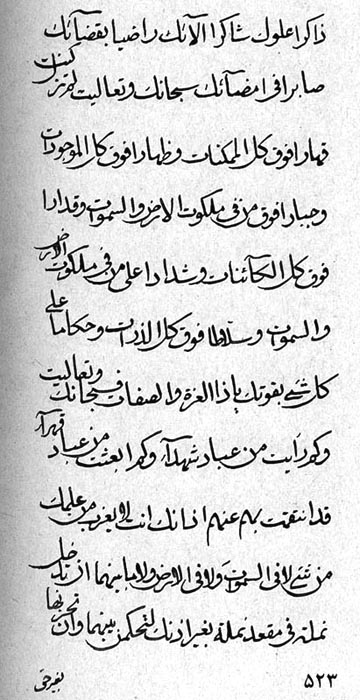 ذاكرا علوك شاكرا لآلائك راضيا بقضائك
صابرا فى امضائك سبحانك وتعاليت لم تزل كنت
قهارا فوق كل الممكنات وظهارا فوق كل الموجودات
وجبارا فوق من فى ملكوت الارض والسموات وقدارا
فوق كل الكائنات وشدادا على من فى ملكوت الارض
والسموات وسلاطا فوق كل الذرات وحكاما على
كل شئ بقوتك يا ذا العزة والصفات فسبحانك وتعاليت
وكم رأيت من عباد شهدآء وكم ابعثت من عباد قهرآء
قد انتقمت بهم عنهم اذ انك انت لا يعزب من علمك
من شئ لا فى السموات ولا فى الارض ولا ما بينهما ان تدخل
نملة فى مقعد نملة بغير اذنك لتحكمن بينهما وان تحزنها
٥٢٣
بغير حق